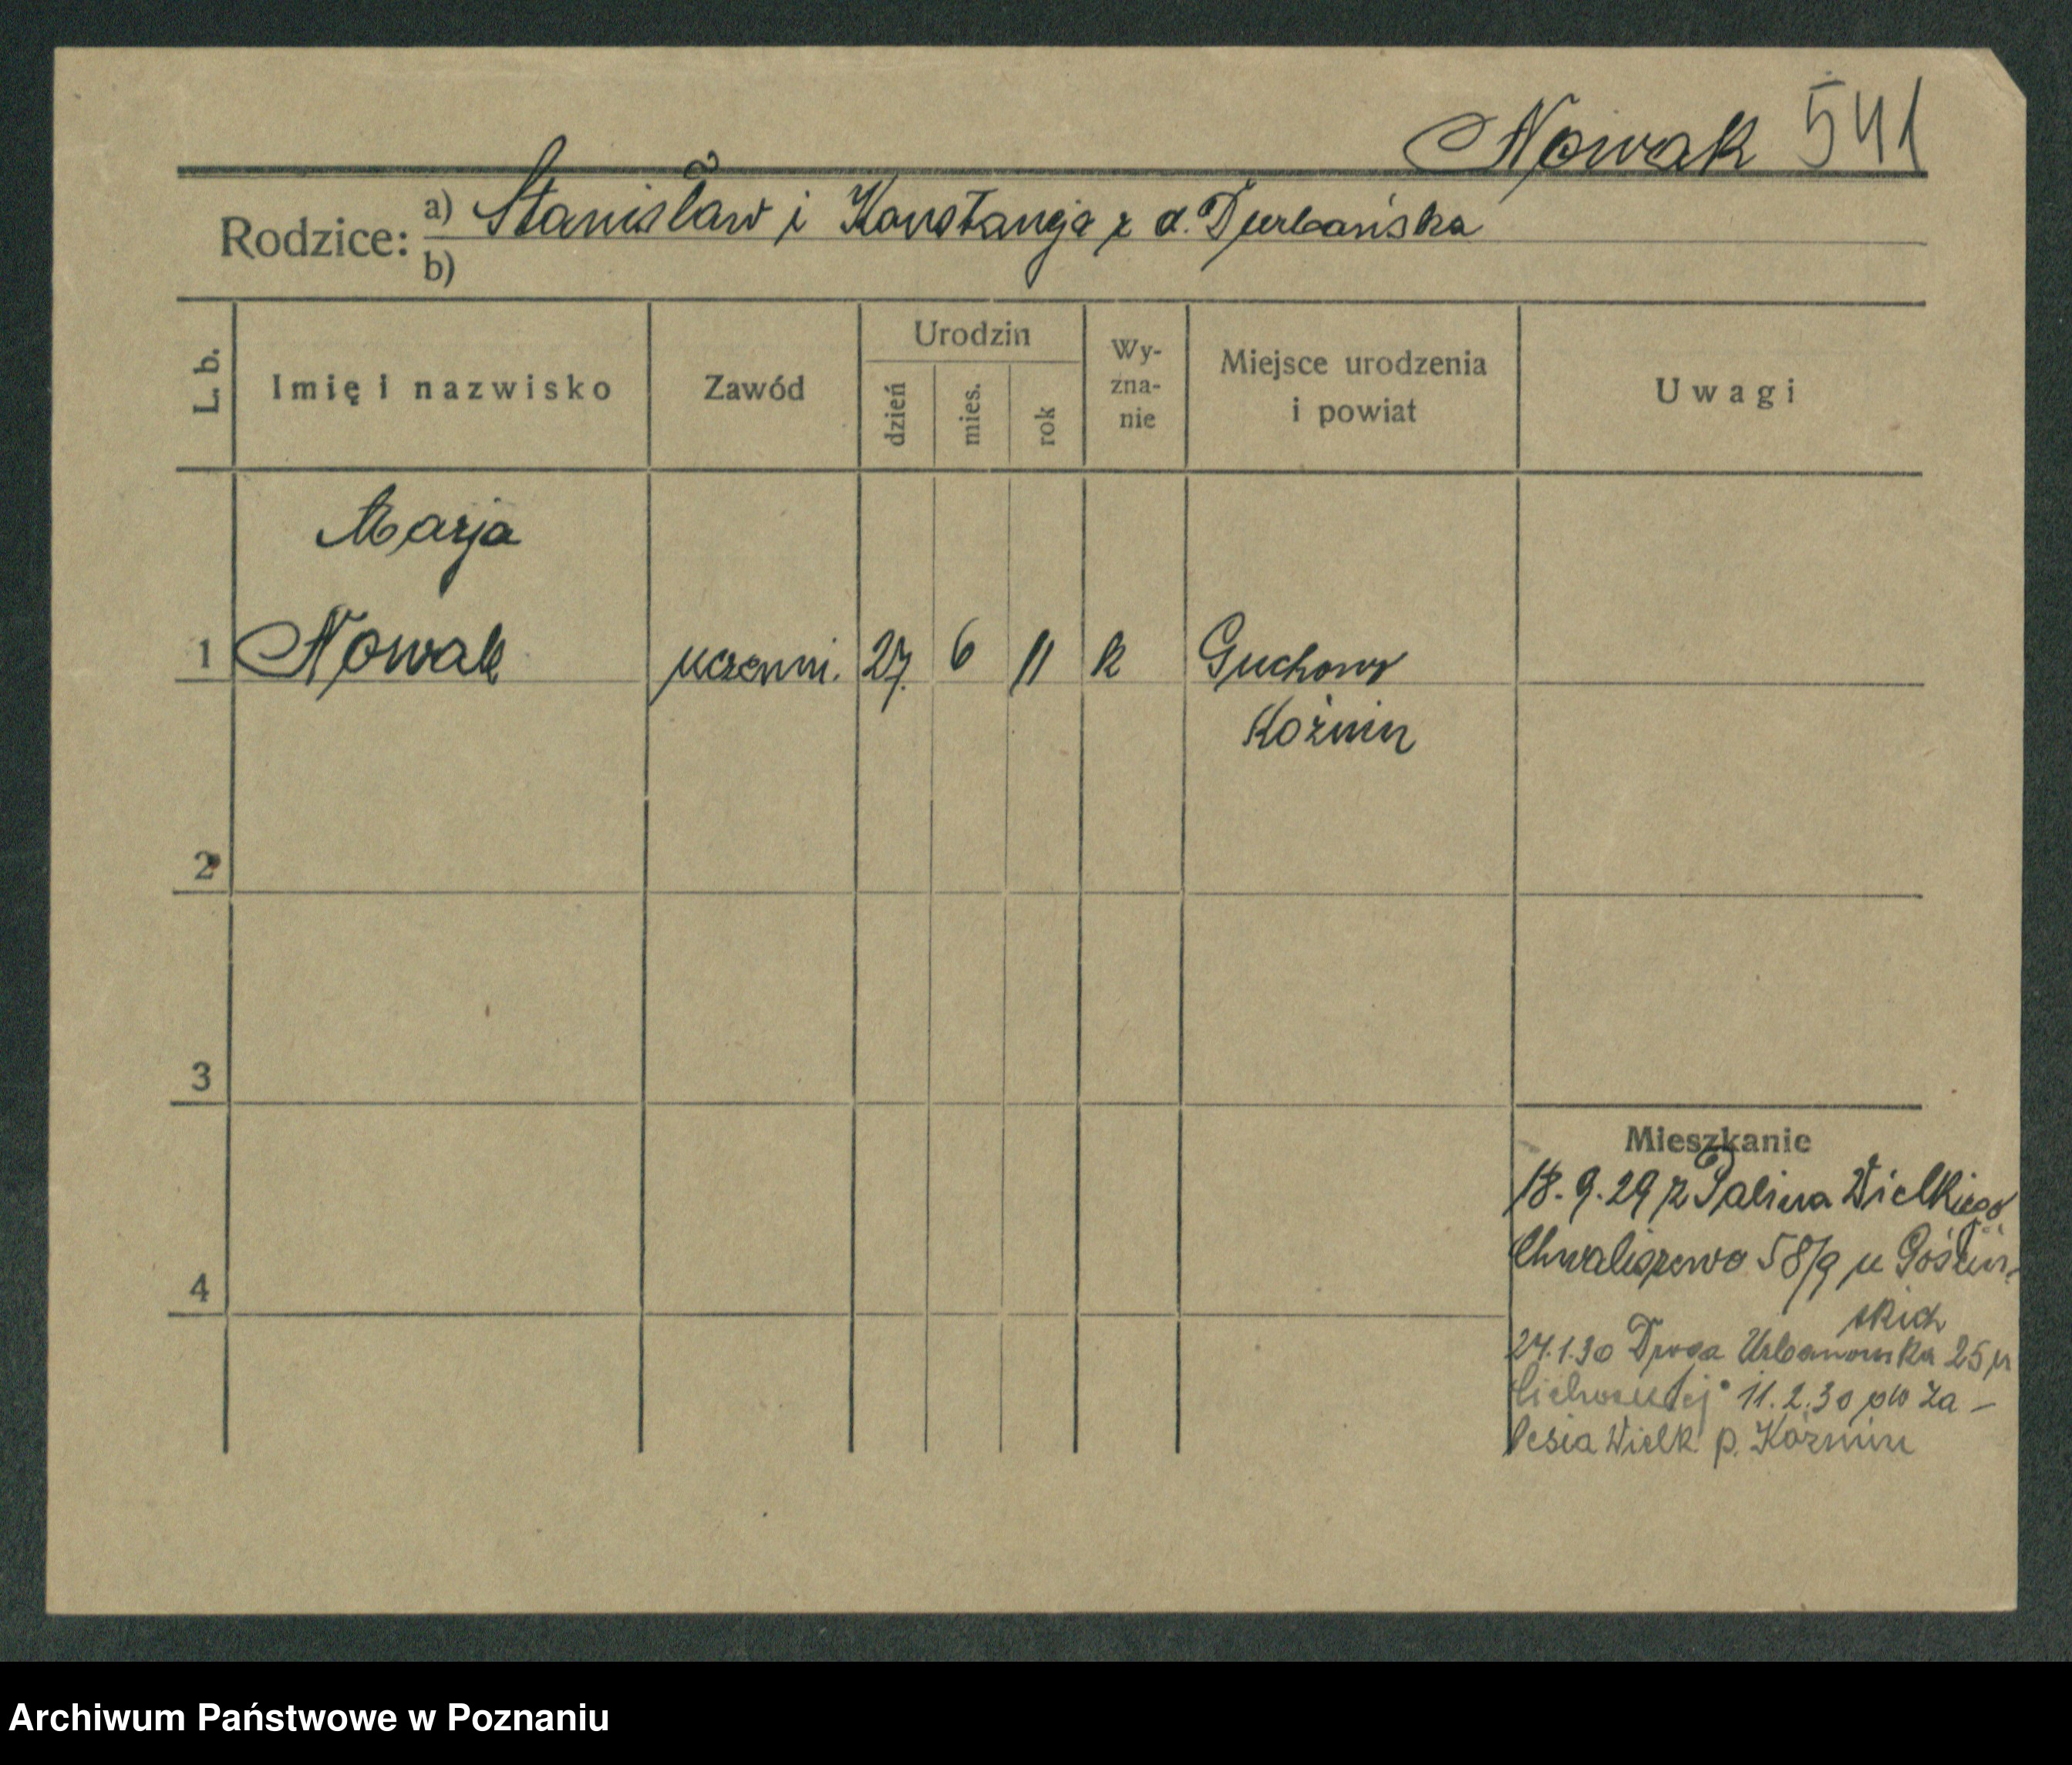 Nowak 541
Rodzice: a) Stanisław i Konstancja z d. Durbańska
b)
L. b. Imię i nazwisko Zawód Urodzin dzień mies. rok Wy-zna-nie Miejsce urodzenia i powiat Uwagi
Marja
1 Nowak uczenni. 27. 6 11 k Guchowo
Koźmin
2
3
Mieszkanie
18.9.29 z Wielkiego
Chwaliszewo 58/9 u Gościń-
4
skich
24.1.30 Droga Urbanowska 25 u
11.2.30 do Za-
lesia Wielk p. Koźmin
Archiwum Państwowe w Poznaniu